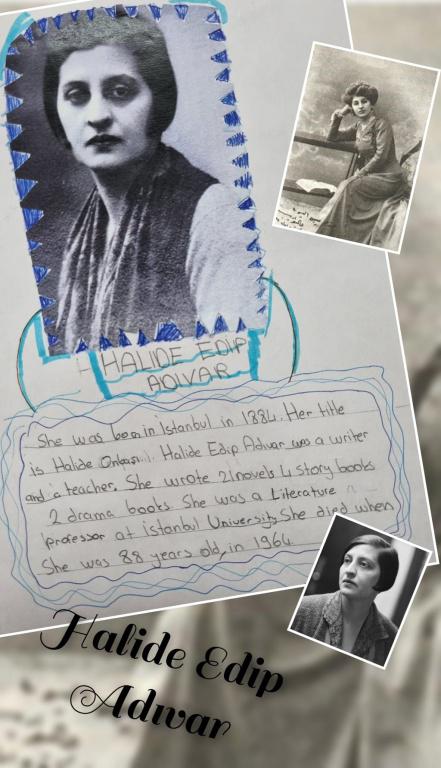 HALIDE EDIP
ADIVAR
She was born in Istanbul in 1884. Her title
is Halide Onbaşı. Halide Edip Adıvar was a writer
and a teacher. She wrote 21 novels 4 story books
2 drama books She was a Literature
professor at istanbul University She died when
She was 88 years old, in 1964
Halide Edip
Adıvar